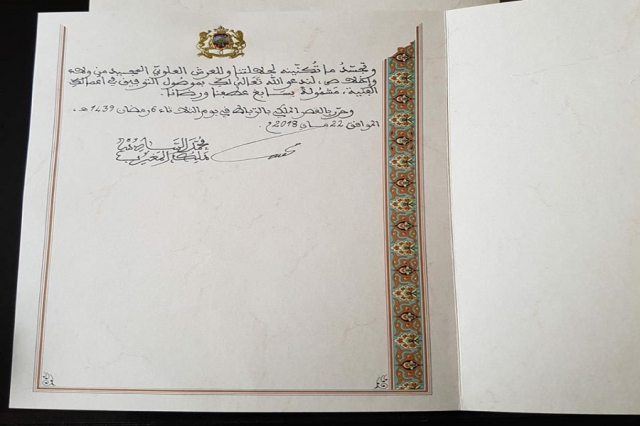 وتجسد ما تكنينه لجلالتنا وللعرش العلوي المجيد من ولاء
وإخلاص، لندعو الله تعالى لك بموصول التوفيق في أعمالك
الفنية، مشمولة بسابغ عطفنا ورضانا.
وحرر بالقصر الملكي بالرباط في يوم الثلاثاء 6 رمضان 1439 هـ،
الموافق 22 ماي 2018 م.
محمد السادس
ملك المغرب